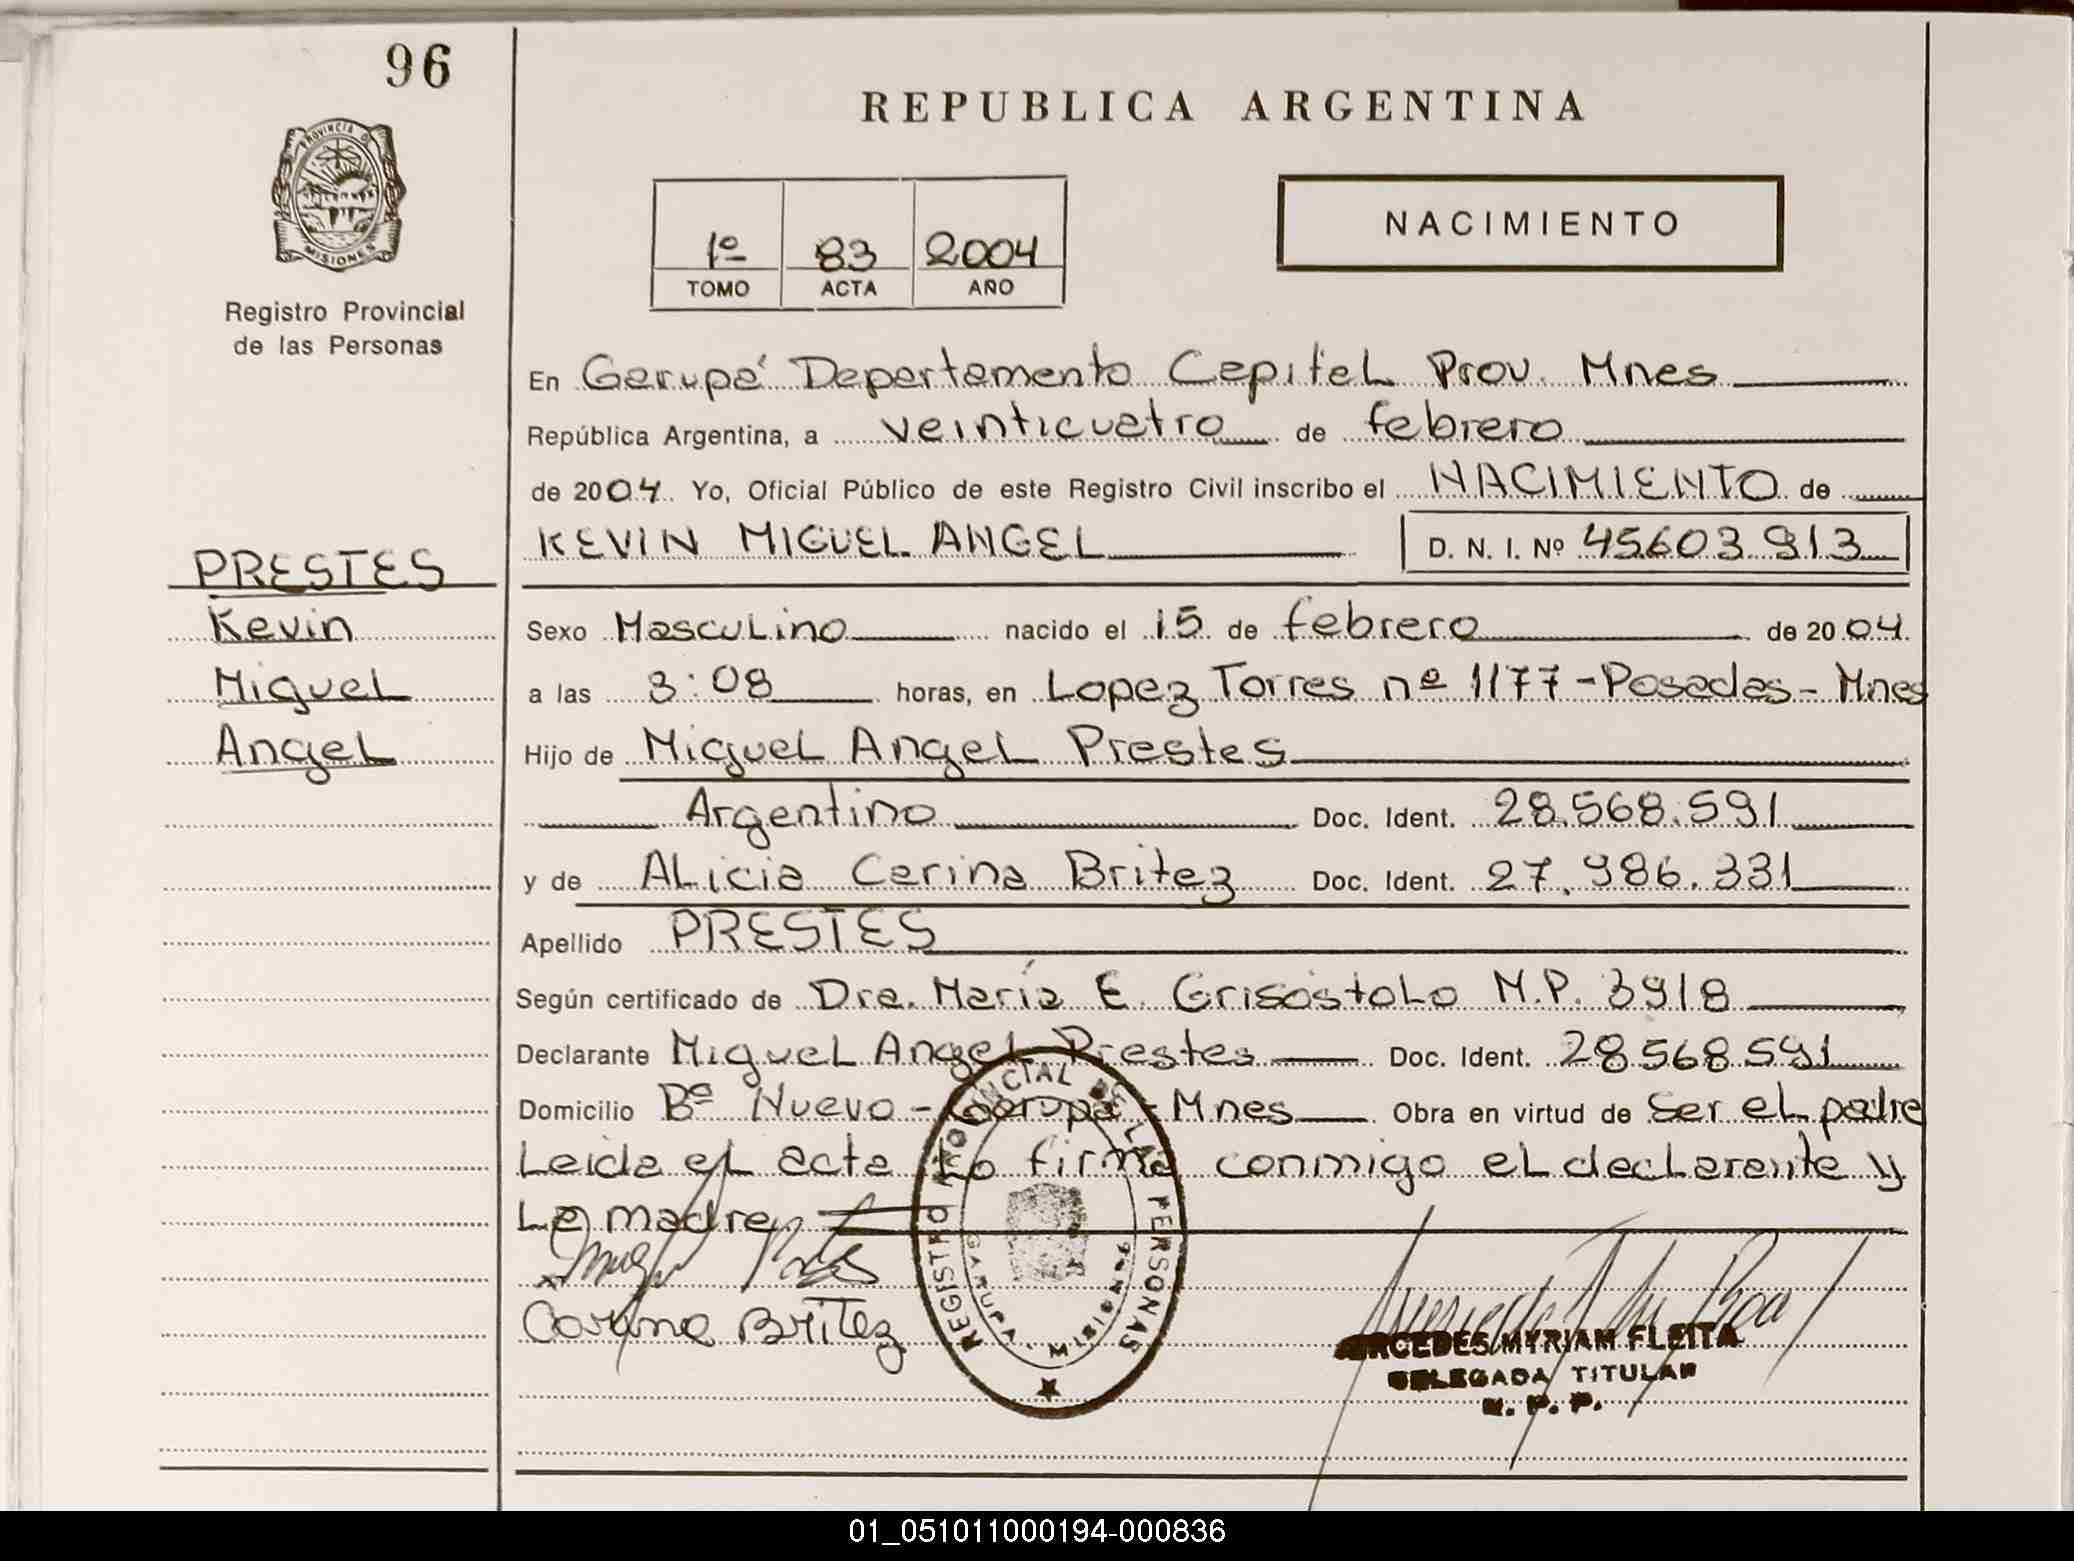 96
REPUBLICA ARGENTINA
PROVINCIA DE
MISIONES
Registro Provincial
de las Personas
1º 83 2004
TOMO ACTA AÑO
NACIMIENTO
En Garupá Departamento Capital Prov. Mnes
República Argentina, a veinticuatro de febrero
de 2004. Yo, Oficial Público de este Registro Civil inscribo el NACIMIENTO de
KEVIN MIGUEL ANGEL D. N. I. Nº 45.603.913
PRESTES
Kevin
Miguel
Angel
Sexo Masculino nacido el 15 de febrero de 2004.
a las 3:08 horas, en Lopez Torres nº 1177 - Posadas - Mnes
Hijo de Miguel Angel Prestes
Argentino Doc. Ident. 28.568.591
y de Alicia Carina Britez Doc. Ident. 27.986.331
Apellido PRESTES
Según certificado de Dra. María E. Grisóstolo M.P. 3918
Declarante Miguel Angel Prestes Doc. Ident. 28.568.591
Domicilio Bº Nuevo - Garupá - Mnes Obra en virtud de ser el padre
Leida el acta la firma conmigo el declarante y
la madre
Carina Britez
REGISTRO PROVINCIAL DE LAS PERSONAS
GARUPA MISIONES
MERCEDES MYRIAM FLEITA
DELEGADA TITULAR
R. P. P.
01_051011000194-000836